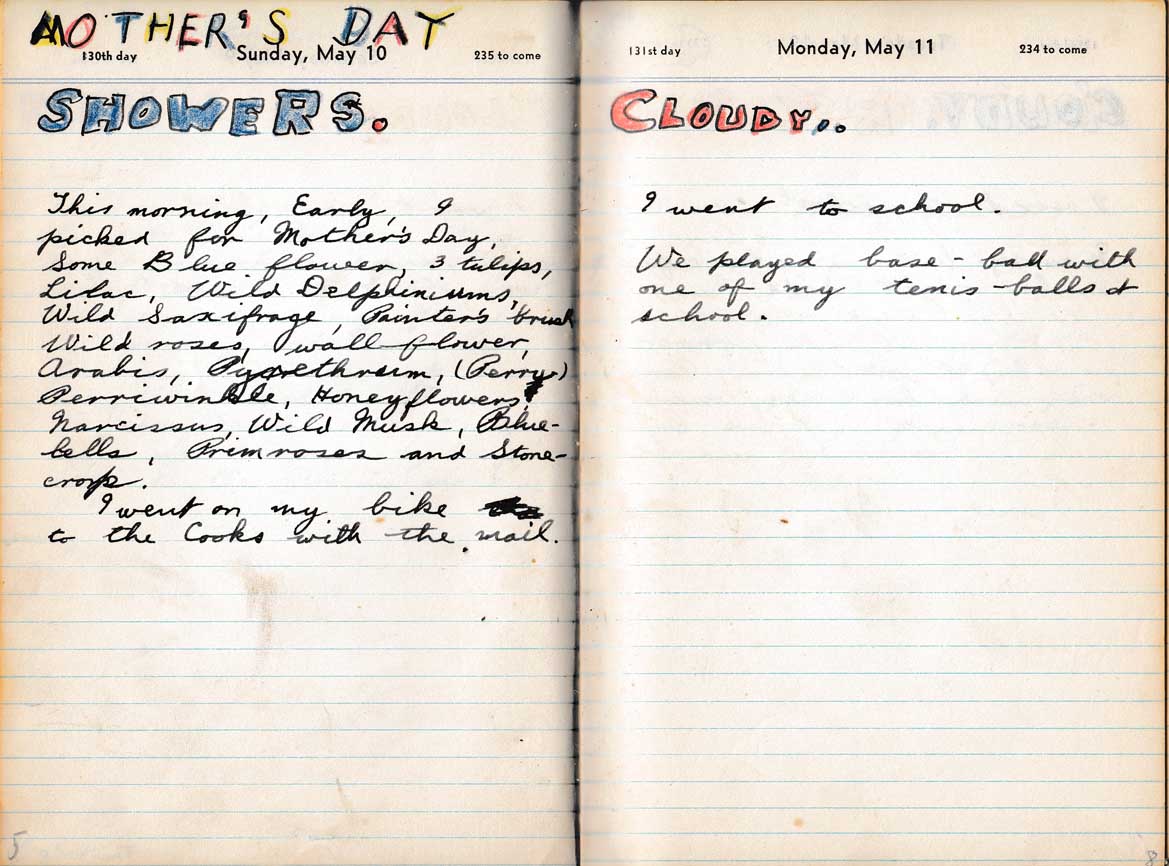 MOTHER'S DAY
130th day Sunday, May 10 235 to come
SHOWERS.
This morning, Early, I
picked for Mother's Day,
Some Blue flower, 3 tulips,
Lilac, Wild Delphiniums,
Wild Saxifrage, Painter's brush
Wild roses, wall flower,
Arabis, Pyrethrum, (Perry)
Perriwinkle, Honeyflowers,
Narcissus, Wild Musk, Blue-
bells, Primroses and Stone-
crop.
I went on my bike
to the Cooks with the mail.
5
131st day Monday, May 11 234 to come
CLOUDY..
I went to school.
We played base-ball with
one of my tenis-balls at
school.
8